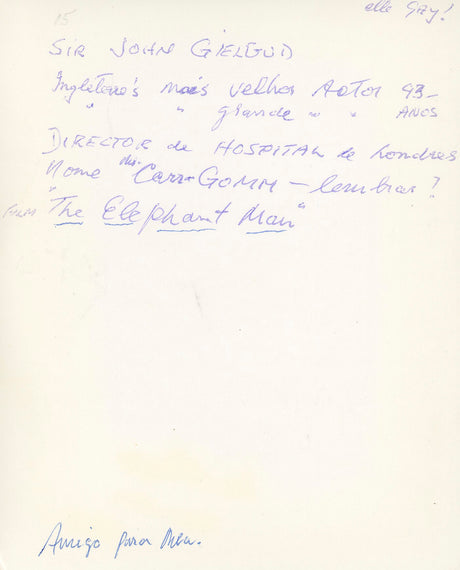 15
elle Gay!
SIR JOHN GIELGUD
Ingleterre's mais velhos Actor 93-
" " grande " " ANOS
DIRECTOR de HOSPITAL de Londres
Nome Mr. Carr-GOMM - lembrar?
FILM "The Elephant Man"
Amigo para Meu.